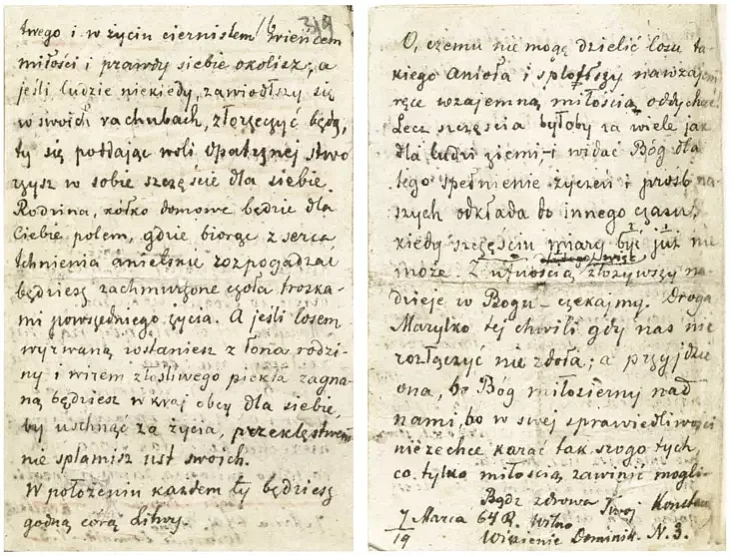 319
twego i w życiu ciernistem wieńcem
miłości i prawdy siebie okolisz, a
jeśli ludzie niekiedy, zawiódłszy się
w swoich rachubach, złorzeczyć będą,
ty się poddając woli Opatrznej stwo
rzysz w sobie szczęście dla siebie.
Rodzina, kółko domowe będzie dla
Ciebie polem, gdzie biorąc z serca
tchnienia anielskie rozpogadzać
będziesz zachmurzone czoła troska-
mi powszedniego życia. A jeśli losem
wyrwaną zostaniesz z łona rodzi-
ny i wirem złośliwego piekła zagna-
ną będziesz w kraj obcy dla siebie,
by uschnąć za życia, przekleństwem
nie splamisz ust swoich.
W położeniu każdem ty będziesz
godną córą Litwy.
O, czemu nie mogę dzielić losu ta-
kiego Anioła i splotłszy nawzajem
ręce wzajemną miłością oddychać!
Lecz szczęścia byłoby za wiele jak
dla ludzi ziemi, i widać Bóg dla
tego spełnienie życzeń i prośb na-
szych odkłada do innego czasu,
kiedy szczęściu miarą być już nie
może. Z ufnością złożywszy na
dzieje w Bogu – czekajmy. Droga
Marylko tej chwili gdy nas nic
rozłączyć nie zdoła; a przyjdzie
ona, bo Bóg miłosierny nad
nami, bo w swej sprawiedliwości
niezechce karać tak srogo tych,
co tylko miłością zawinić mogli.
Bądź zdrowa Twój Konstan
7/19 Marca 64 R. Wilno
Więzienie Dominik. N. 3.